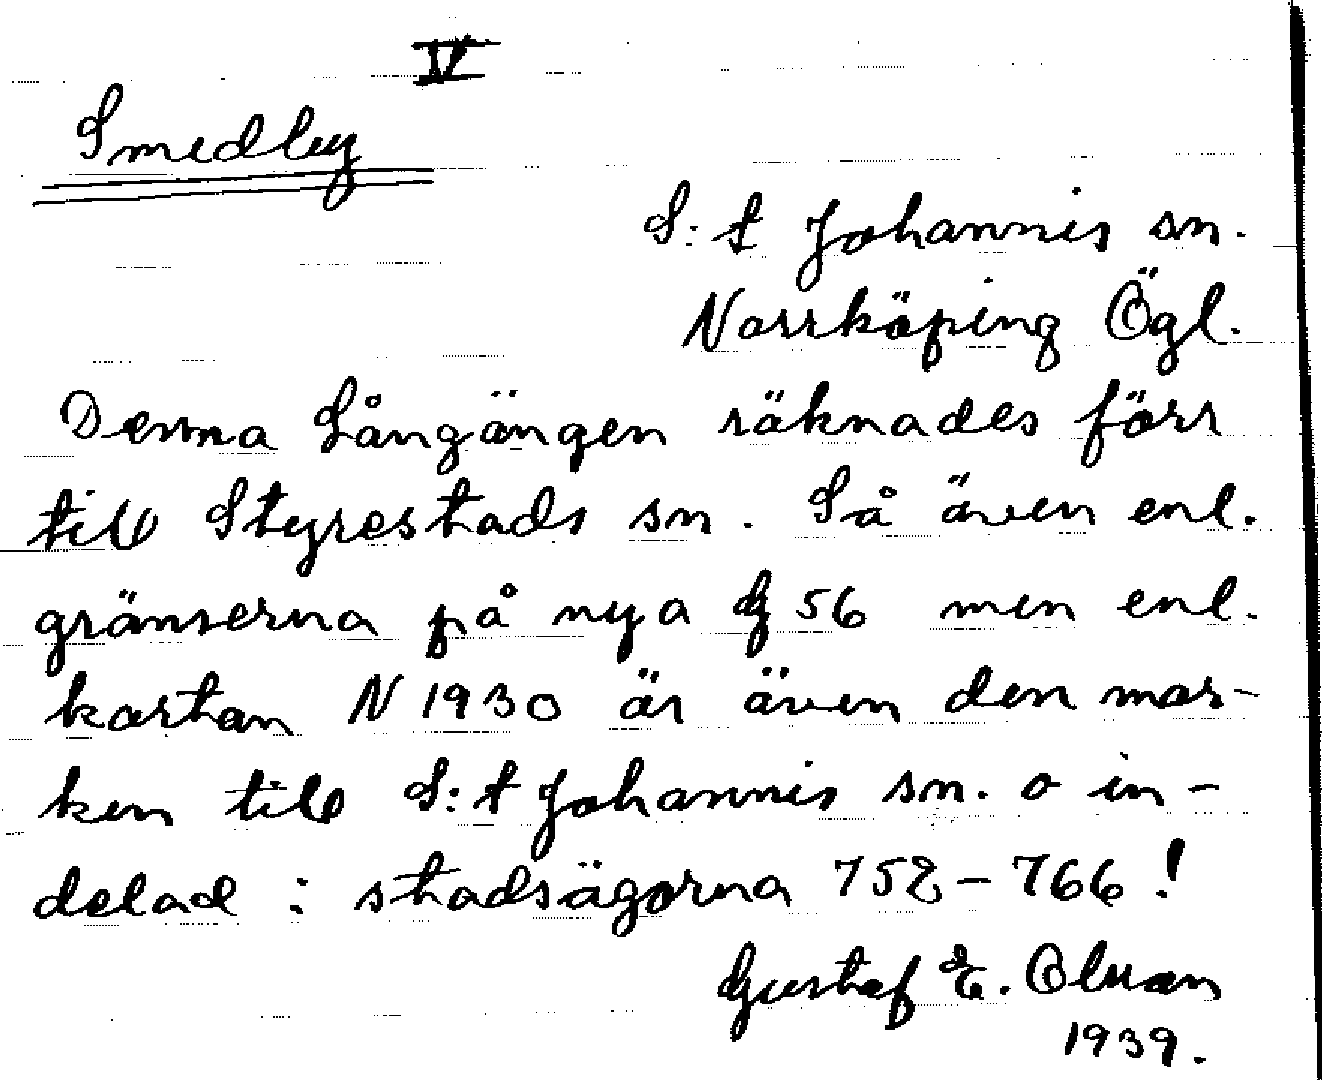 IV
Smedby
S:t Johannis sn.
Norrköping Ögl.
Denna Sångängen räknades förr
till Styrestads sn. Så även enl.
gränserna på nya G 56 men enl.
kartan N 1930 är även den mar-
ken till S:t Johannis sn. o in-
delad i stadsägorna 752-766!
Gustaf E. Olman
1939.